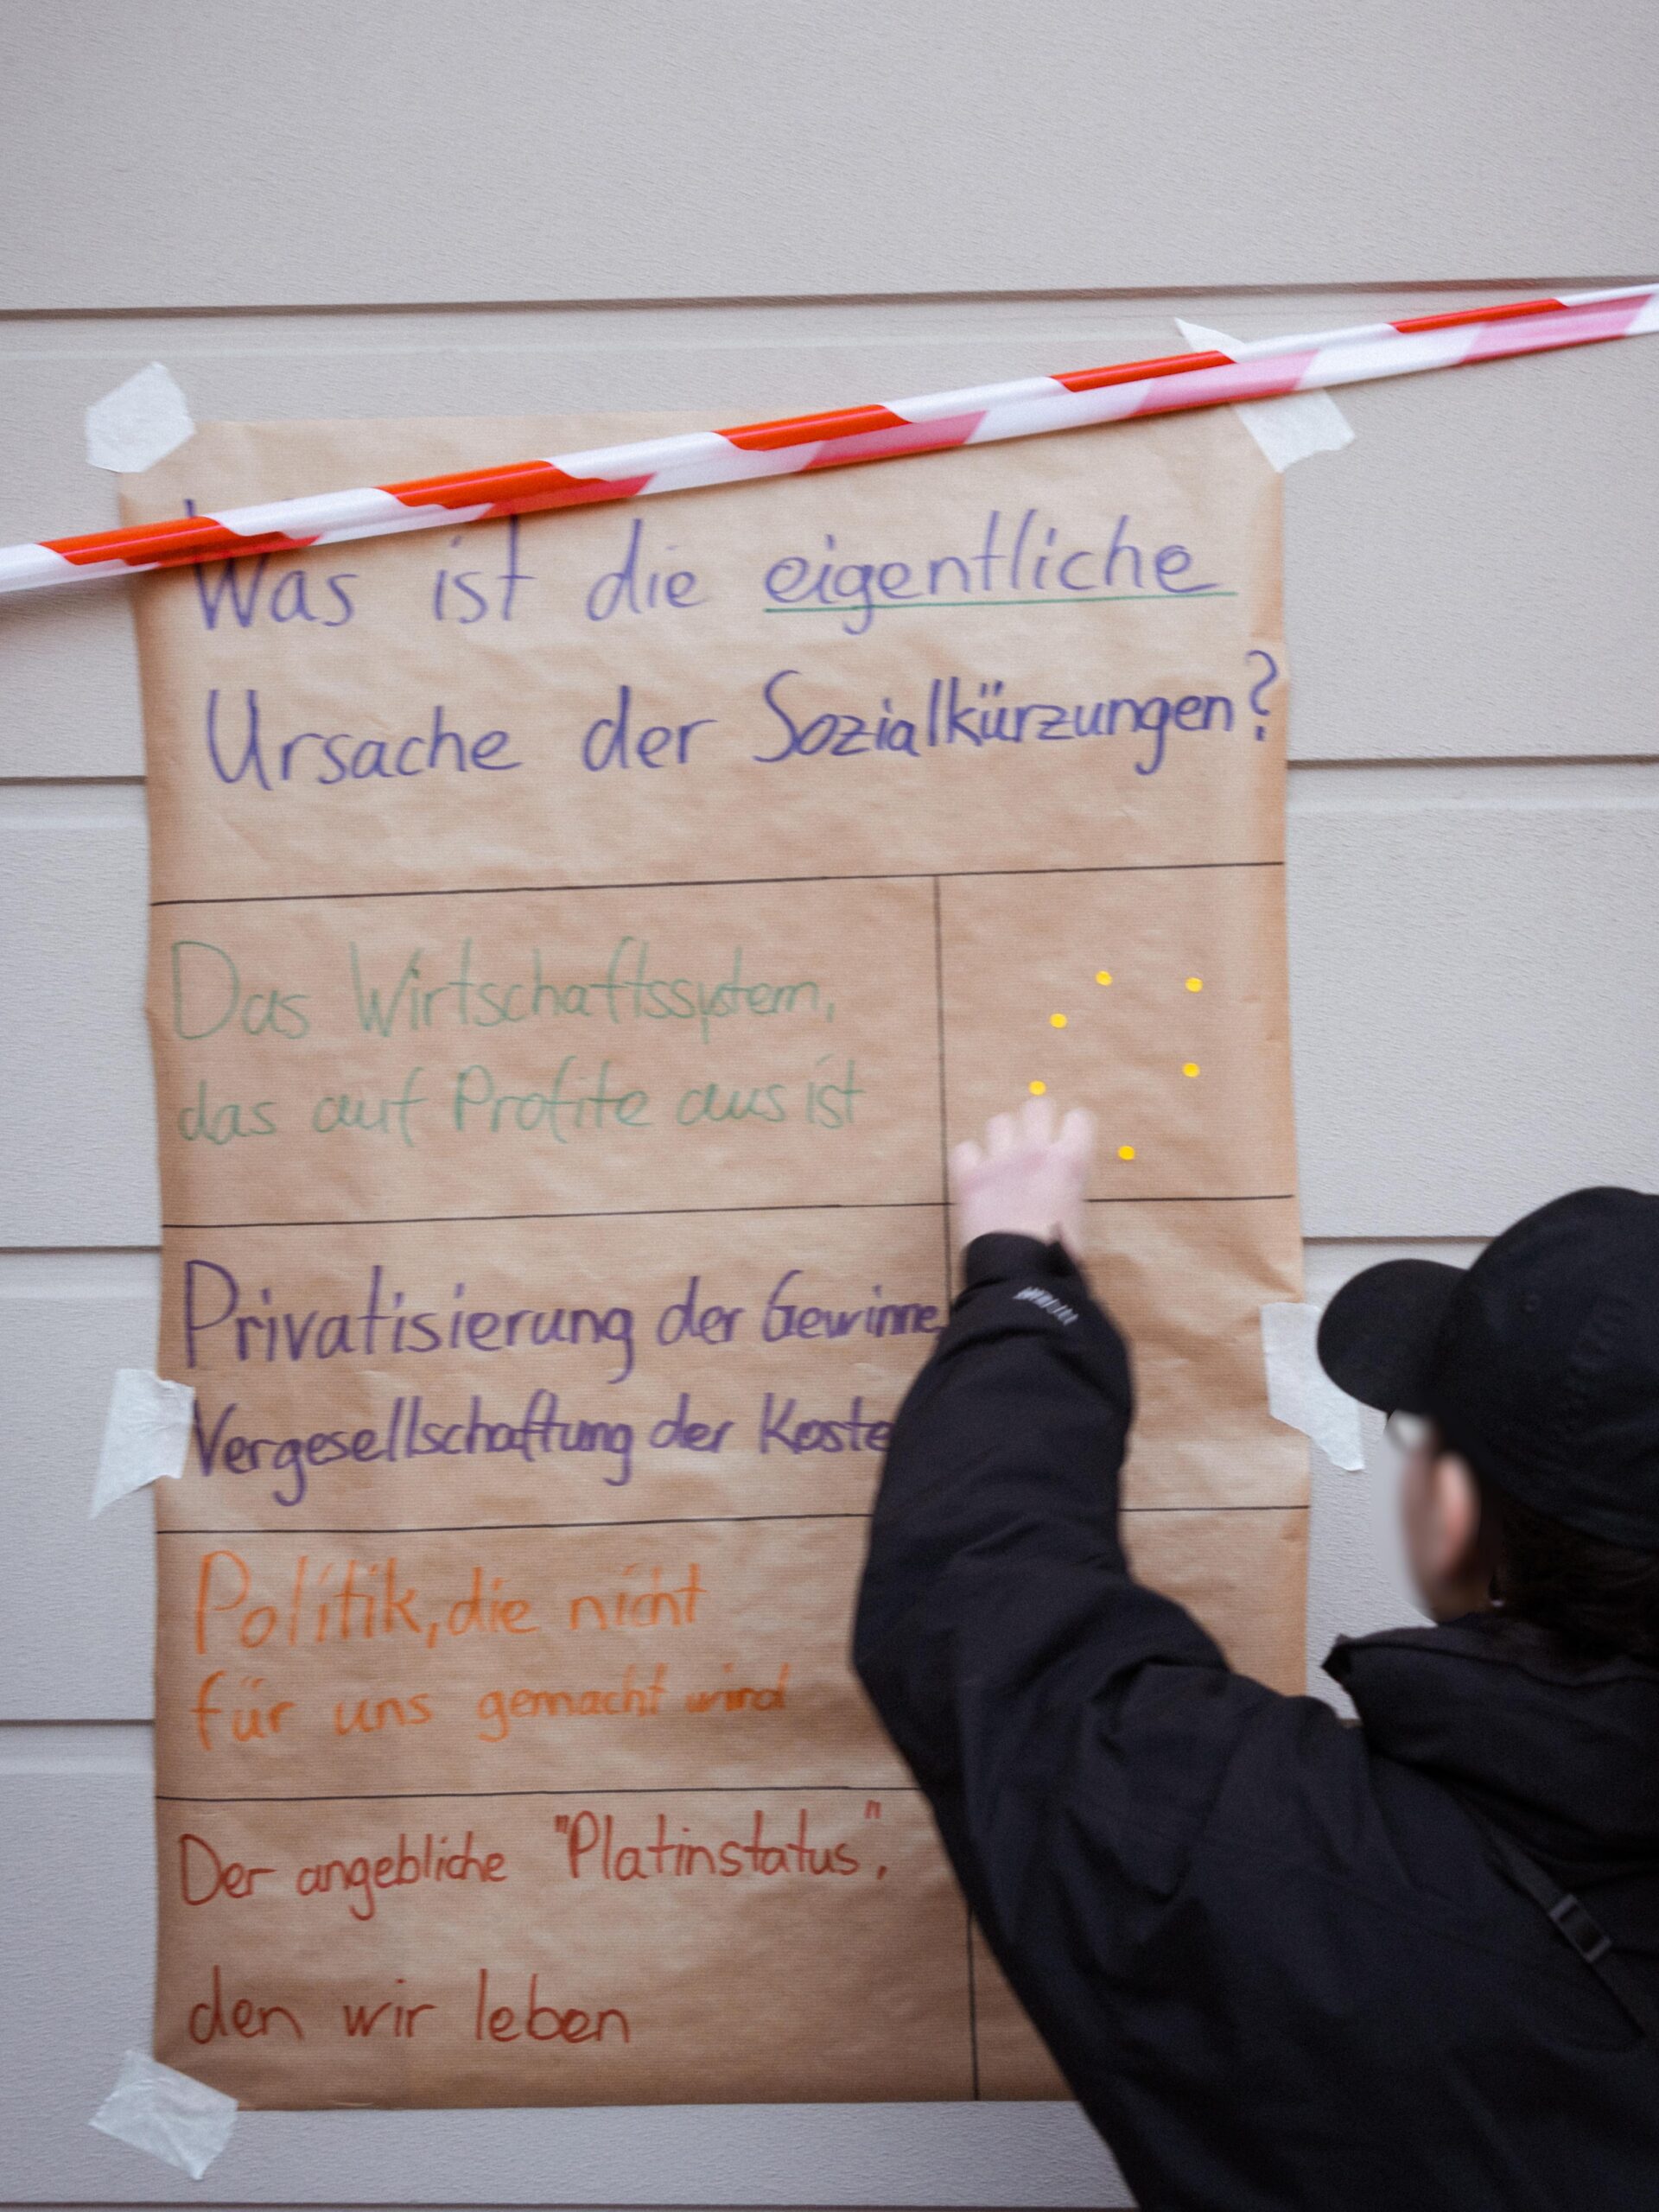 Was ist die eigentliche
Ursache der Sozialkürzungen?
Das Wirtschaftssystem,
das auf Profite aus ist
Privatisierung der Gewinne,
Vergesellschaftung der Koste
Politik, die nicht
für uns gemacht wird
Der angebliche "Platinstatus",
den wir leben